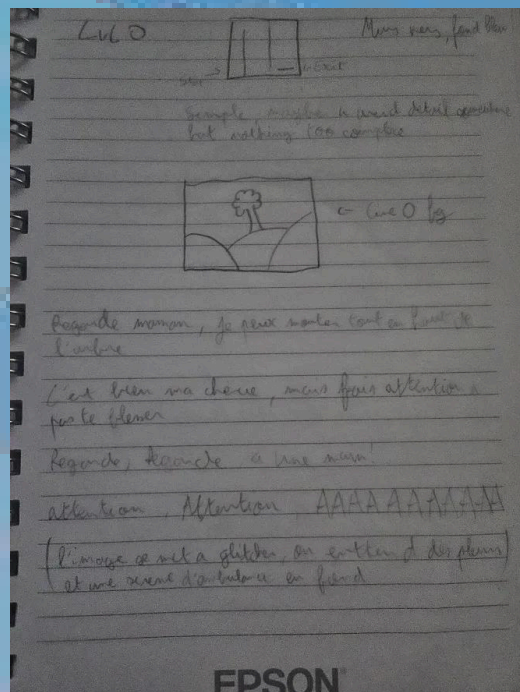 Lvl 0
Murs noirs, fond bleu
Start
Exit
Simple, maybe a weird detail somewhere
but nothing too complex
Lvl 0 bg
Regarde maman, je peux monter tout en haut de
l'arbre
C'est bien ma cherie, mais fais attention a
pas te blesser
Regarde, Regarde a une main!
attention, Attention, AAAA AAAAAAA
(l'image se met a glitcher, on entend des pleurs)
et une sirene d'ambulance en fond
EPSON